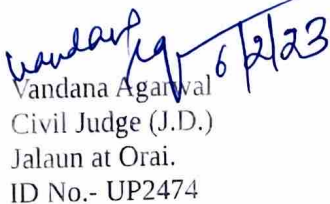 6/2/23
Vandana Agarwal
Civil Judge (J.D.)
Jalaun at Orai.
ID No.- UP2474